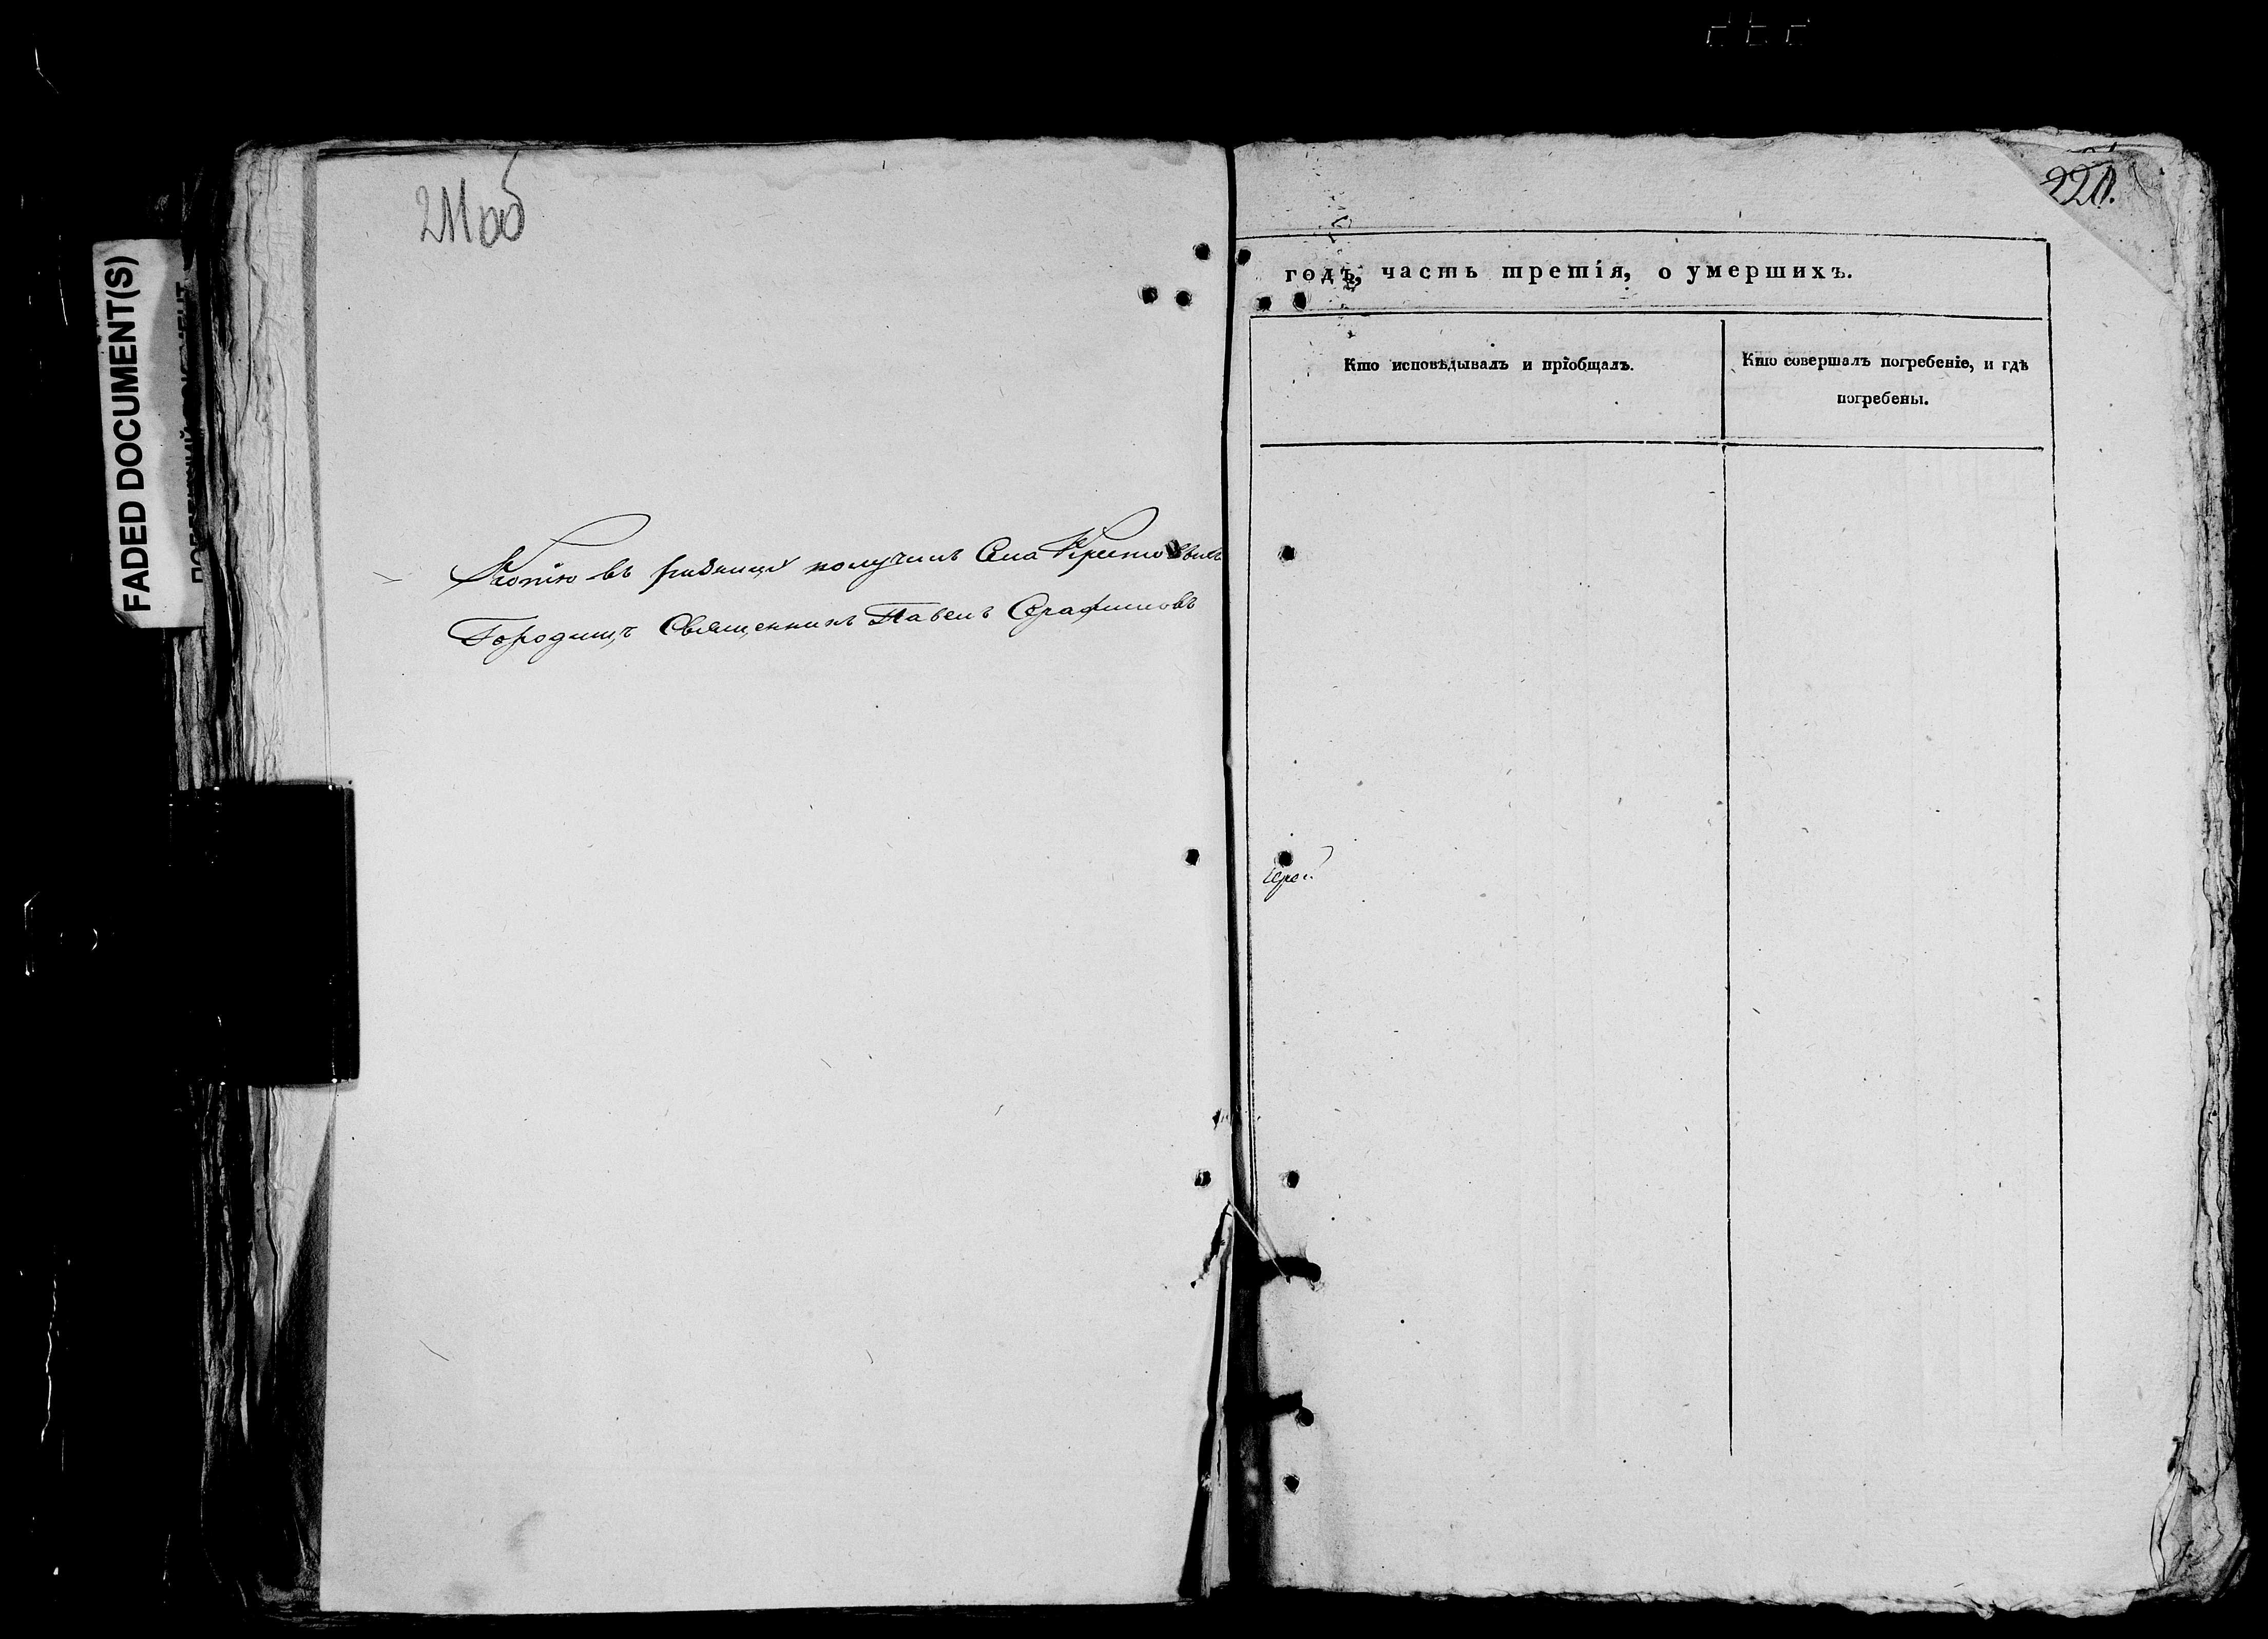 211об
221.
FADED DOCUMENT(S)
годъ, часть третія, о умершихъ.
Кто исповѣдывалъ и пріобщалъ.
Кто совершалъ погребеніе, и гдѣ
погребены.
Копію въ получилъ Села Крестовыхъ
Городищъ Священникъ Павелъ Серафимовъ